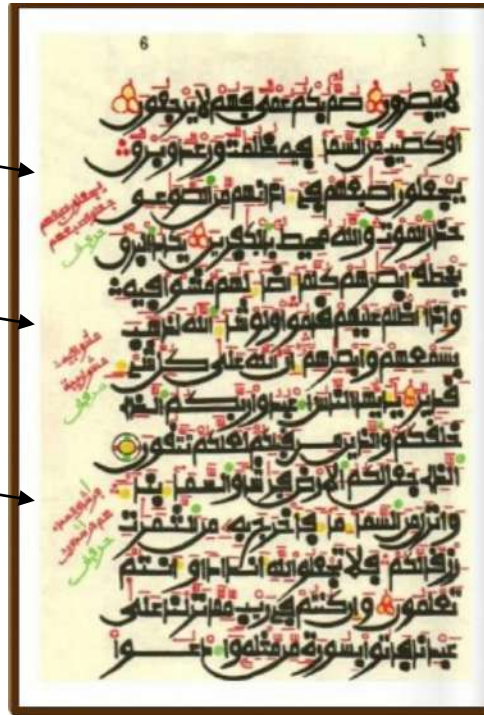 6 ٦
لا يبصرون صم بكم عمى فهم لا يرجعون
أو كصيب من السماء فيه ظلمت ورعد وبرق
يجعلون أصبعهم في ءاذانهم من الصوعق
حذر الموت والله محيط بالكفرين يكاد البرق
يخطف أبصرهم كلما أضاء لهم مشوا فيه
وإذا أظلم عليهم قاموا ولو شاء الله لذهب
بسمعهم وأبصرهم إن الله على كل شيء
قدير يأيها الناس اعبدوا ربكم الذي
خلقكم والذين من قبلكم لعلكم تتقون
الذي جعل لكم الأرض فرشا والسماء بناء
وأنزل من السماء ماء فأخرج به من الثمرت
رزقا لكم فلا تجعلوا لله أندادا وأنتم
تعلمون وإن كنتم في ريب مما نزلنا على
عبدنا فأتوا بسورة من مثله وادعوا